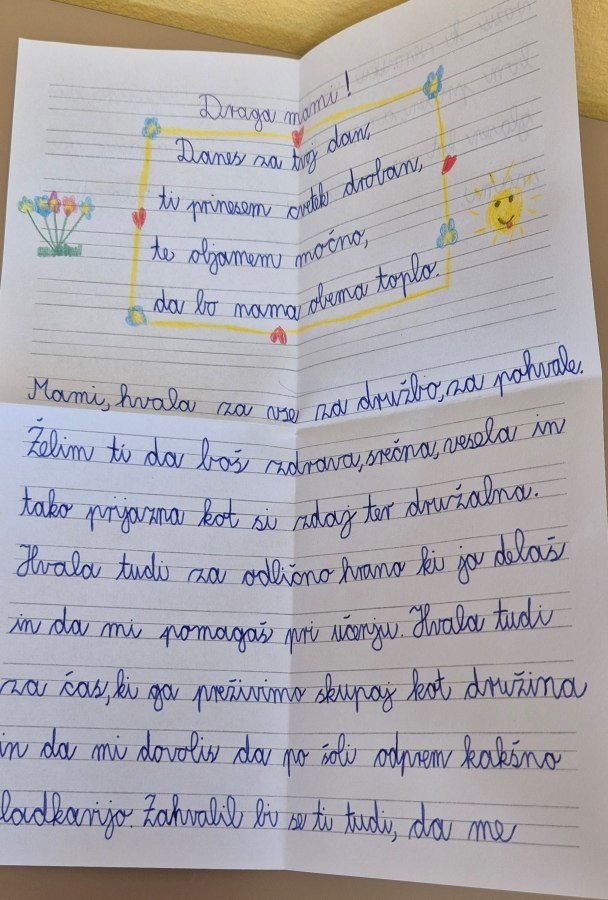 Draga mami!
Danes za tvoj dan,
ti prinesem cvetek droban,
te objamem močno,
da bo nama obema toplo.
Mami, hvala za vse za družbo, za pohvale.
Želim ti da boš zdrava, srečna, vesela in
tako prijazna kot si zdaj ter družabna.
Hvala tudi za odlično hrano ki jo delaš
in da mi pomagaš pri učenju. Hvala tudi
za čas, ki ga preživimo skupaj kot družina
in da mi dovolis da po šoli odprem kakšno
sladkarijo. Zahvalil bi se ti tudi, da me